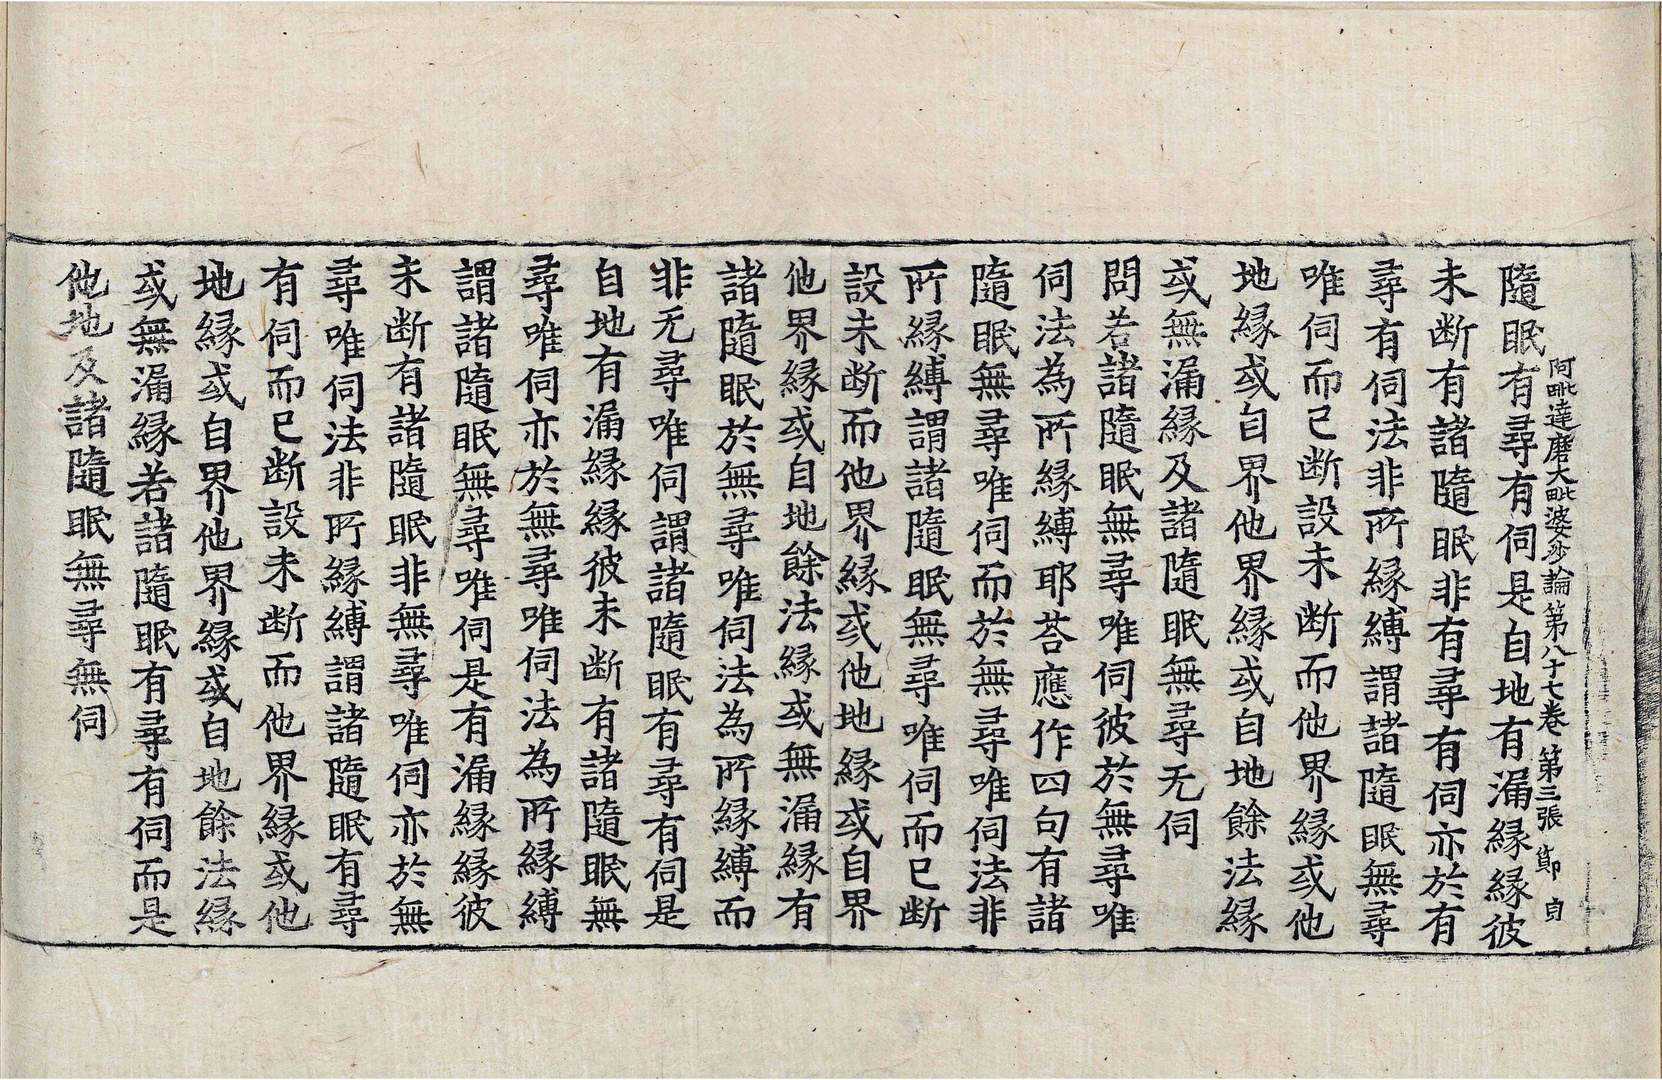 阿毗達磨大毗婆沙論第八十七卷 第三張 節 自
隨眠有尋有伺是自地有漏緣緣彼
未断有諸隨眠非有尋有伺亦於有
尋有伺法非所緣縛謂諸隨眠無尋
唯伺而已断設未断而他界緣或他
地緣或自界他界緣或自地餘法緣
或無漏緣及諸隨眠無尋无伺
問若諸隨眠無尋唯伺彼於無尋唯
伺法為所緣縛耶荅應作四句有諸
隨眠無尋唯伺而於無尋唯伺法非
所緣縛謂諸隨眠無尋唯伺而已断
設未断而他界緣或他地緣或自界
他界緣或自地餘法緣或無漏緣有
諸隨眠於無尋唯伺法為所緣縛而
非无尋唯伺謂諸隨眠有尋有伺是
自地有漏緣緣彼未断有諸隨眠無
尋唯伺亦於無尋唯伺法為所緣縛
謂諸隨眠無尋唯伺是有漏緣緣彼
未断有諸隨眠非無尋唯伺亦於無
尋唯伺法非所緣縛謂諸隨眠有尋
有伺而已断設未断而他界緣或他
地緣或自界他界緣或自地餘法緣
或無漏緣若諸隨眠有尋有伺而是
他地及諸隨眠無尋無伺